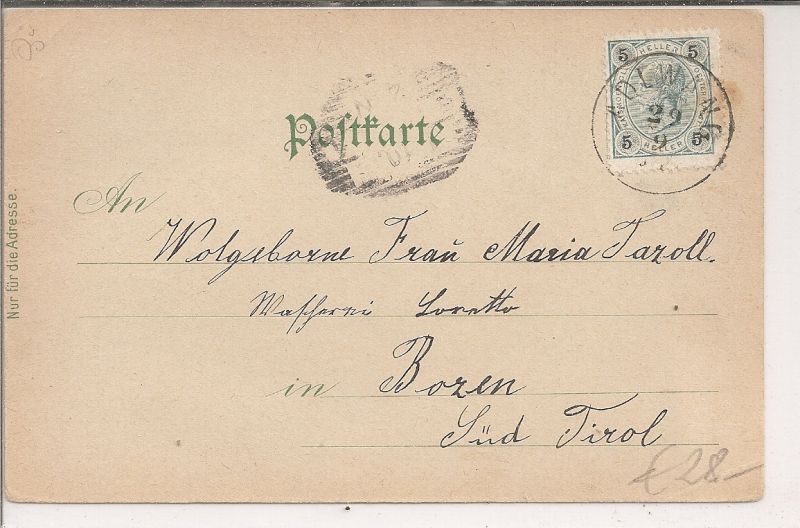 5 HELLER 5
5 HELLER 5
29
9
Postkarte
An
Wolgeborne Frau Maria Tazoll.
Wascherei Loretto
in Bozen
Süd Tirol
€ 28-
Nur für die Adresse.